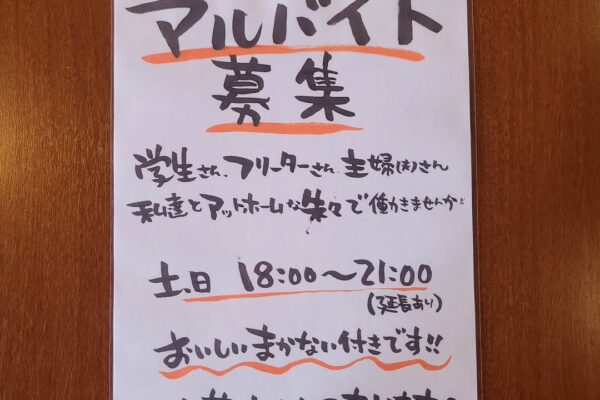 アルバイト
募集
学生さん、フリーターさん、主婦(夫)さん
私達とアットホームな朱々で働きませんか♪
土、日 18:00〜21:00
(延長あり)
おいしいまかない付きです!!